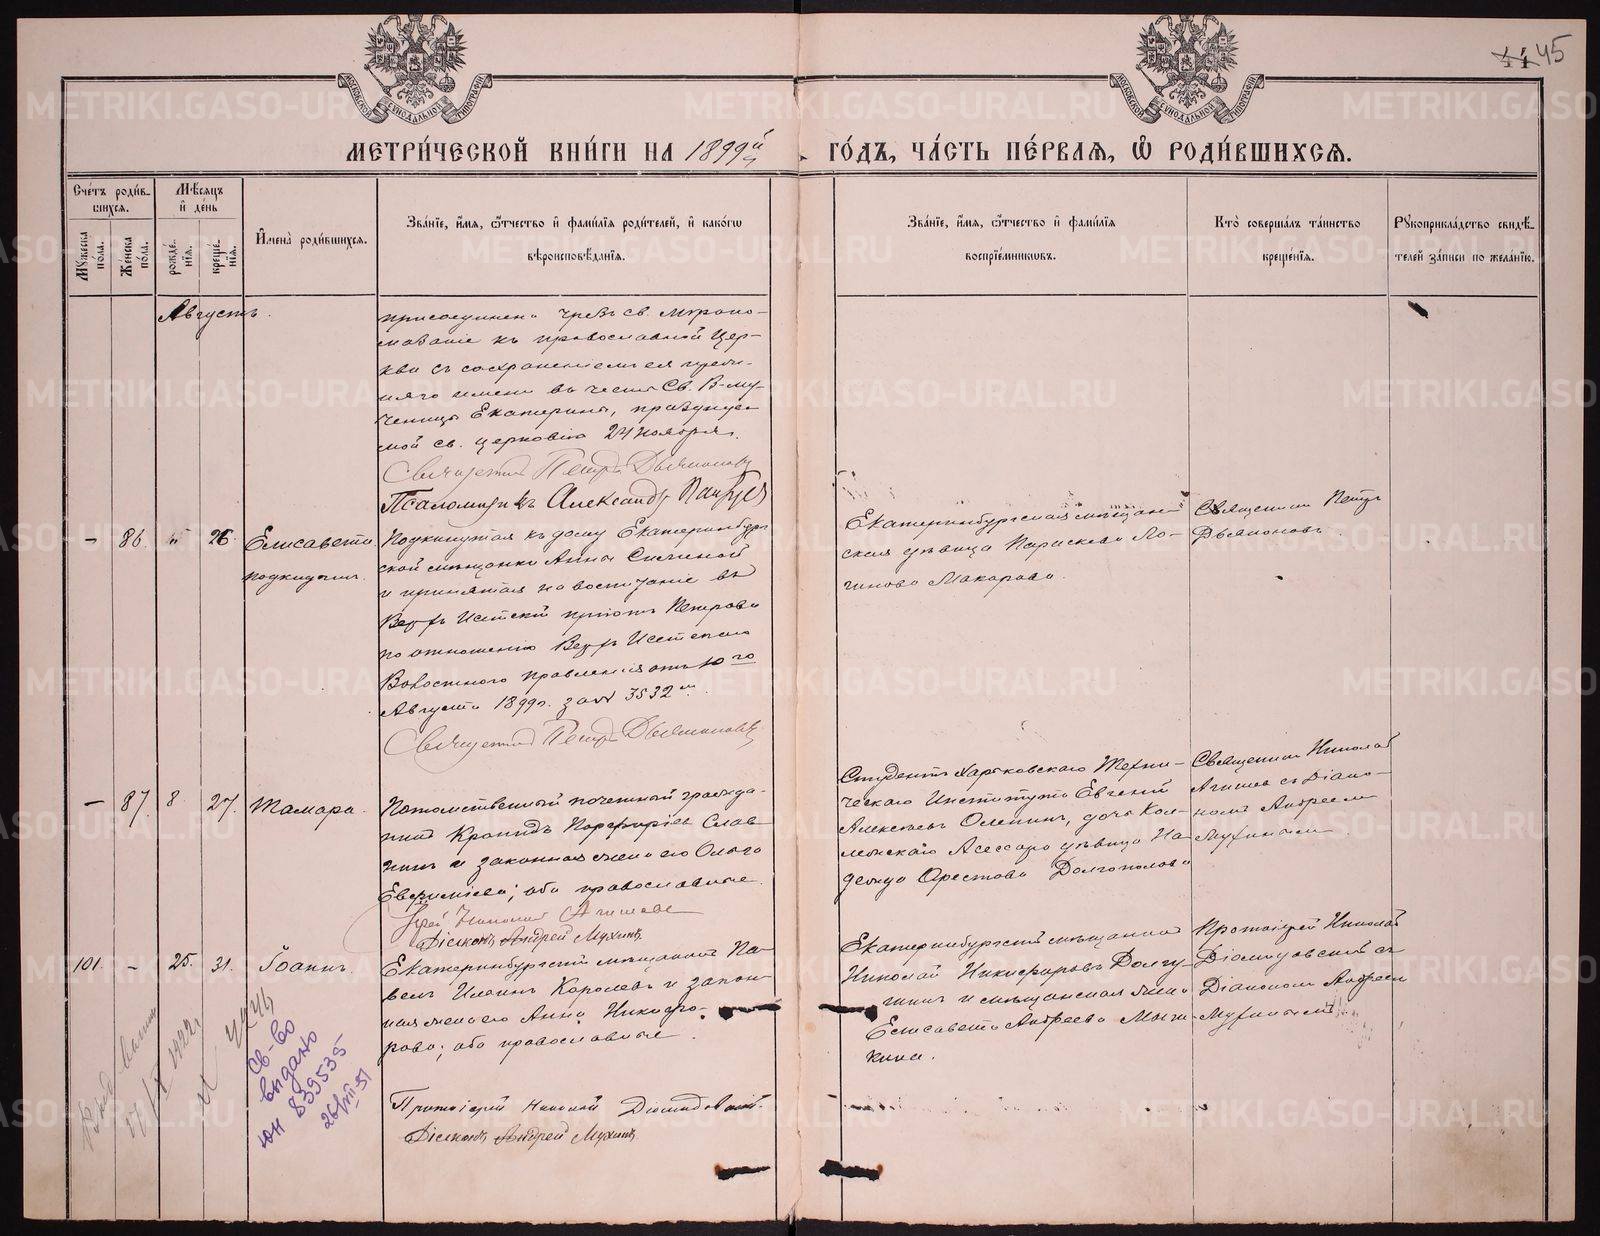 45
МЕТРИ́ЧЕСКОЙ КНИ́ГИ НА 1899й
ГО́ДЪ, ЧА́СТЬ ПЕ́РВАЯ, Ѡ РОДИ́ВШИХСЯ.
Сче́тъ роди́в-
шихся.
Мꙋ́жеска
по́ла.
Же́нска
по́ла.
Мѣ́сяцъ
и́ де́нь
рожде́-
нїя.
креще́-
нїя.
И́мена̀ роди́вшихся.
Зва́нїе, и́мя, ѻ́тчество и́ фами́лїя роди́телей, и́ како́гѡ
вѣроисповѣ́данїя.
Зва́нїе, и́мя, ѻ́тчество и́ фами́лїя
воспрїе́мниковъ.
Кто̀ соверша́лъ та́инство
креще́нїя.
Рꙋкоприкла́дство свидѣ́-
телей за́писи по жела́нїю.
Августъ.
присоединена чрезъ св. мѵропо-
мазаніе къ православной Цер-
кви съ сохраненіемъ ея преж-
няго имени въ честь Св. В-му-
ченицы Екатерины, празднуе-
мой св. церковію 24 ноября.
Священникъ Петръ Дьяконовъ
Псаломщикъ Александръ
– 86. 26. Елисавета
подкидышъ.
Подкинутая къ дому Екатеринбург-
ской мѣщанки Анны
и принятая на воспитаніе въ
Верхъ Исетскій пріютъ Петрова
по отношенію Верхъ Исетскаго
Волостного правленія отъ 10го
Августа 1899г. за № 3532м.
Священникъ Петръ Дьяконовъ
Екатеринбургская мѣщан-
ская дѣвица Параскева Ло-
гинова Макарова.
Священникъ Петръ
Дьяконовъ.
– 87. 8. 27. Тамара.
Потомственный почетный гражда-
нинъ Кронидъ Порфирьевъ Слав-
нинъ и законная жена его Ольга
Евфиміева; оба православные.
Іерей Николай Агишевъ
Діаконъ Андрей Мухинъ
Студентъ Харьковскаго Техни-
ческаго Института Евгеній
Алексѣевъ Оленинъ, дочь Кол-
лежскаго Асессора дѣвица На-
дежда Орестова Долгополова
Священникъ Николай
Агишевъ съ Діако-
номъ Андреемъ
Мухинымъ.
101. – 25. 31. Іоаннъ.
Екатеринбургскій мѣщанинъ Па-
велъ Ильинъ Королевъ и закон-
ная жена его Анна Никифо-
рова; оба православные.
Протоіерей Николай
Діаконъ Андрей Мухинъ
Екатеринбургскій мѣщанинъ
Николай Никифоровъ Долгу-
шинъ и мѣщанская жена
Елисавета Андреева
Протоіерей Николай
съ
Діакономъ Андреемъ
Мухинымъ
св-во
выдано
юн 839535
26/VII-51